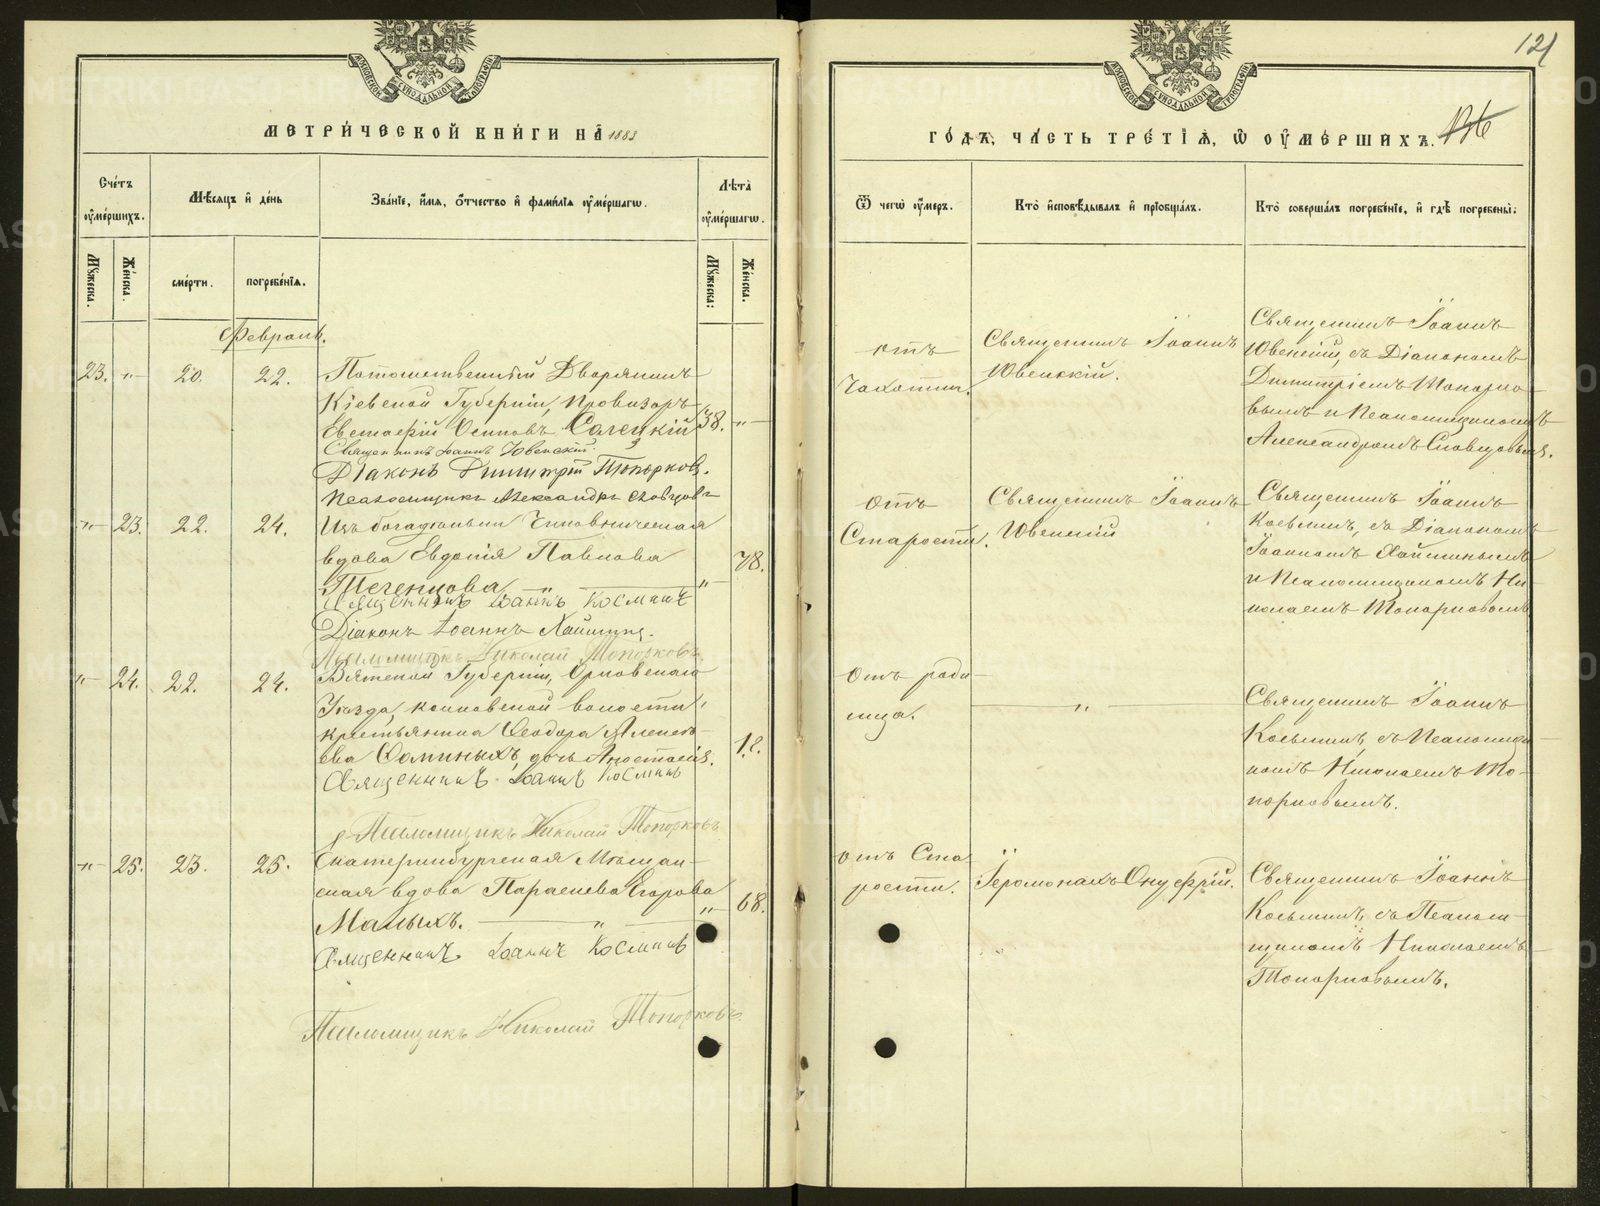 МЕТРИ́ЧЕСКОЙ КНИ́ГИ НА̀ 1883
Сче́тъ оу҆ме́ршихъ.
Мѣ́сѧцъ и҆ де́нь
Зва́нїе, и҆́мѧ, ѻ҆́тчество и҆ фами́лїѧ оу҆ме́ршагѡ.
Лѣ́та оу҆ме́ршагѡ.
Мꙋ́жеска.
Же́нска.
сме́рти.
погребе́нїѧ.
Мꙋ́жеска.
Же́нска.
Февраль.
23. -"- 20. 22. Потомственный Дворянинъ
Кіевской Губерніи, Провизоръ
Евстафій Осиповъ Салецкій 38. -"-
Священникъ Іоаннъ Ювенскій
Діаконъ Димитрій Топорковъ.
Псаломщикъ Александръ Словцовъ
-"- 23. 22. 24. Изъ богадѣльни Чиновническая
вдова Евдокія Павлова 78.
-"-
Священникъ Іоаннъ Косминъ
Діаконъ Іоаннъ
Псаломщикъ Николай Топорковъ
-"- 24. 22. 24. Вятской Губерніи, Орловскаго
Уѣзда, волости,
крестьянина Ѳеодора Алексѣ-
ева Ѳоминыхъ, дочь Анастасія.
Священникъ Іоаннъ Косминъ
Псаломщикъ Николай Топорковъ
-"- 25. 23. 25. Екатеринбургская Мѣщан-
ская вдова Параскева Егорова 68.
Малыхъ. " -"-
Священникъ Іоаннъ Косминъ
Псаломщикъ Николай Топорковъ
121
ГО́ДЪ, ЧА́СТЬ ТРЕ́ТЇѦ, Ѡ҆ ОУ҆МЕ́РШИХЪ.
Ѿ чегѡ̀ оу҆́меръ.
Кто̀ и҆сповѣ́дывалъ и҆ прїѡбща́лъ.
Кто̀ соверша́лъ погребе́нїе, и҆ гдѣ̀ погребены̀.
отъ
Чахотки.
Священникъ Іоаннъ
Ювенскій.
Священникъ Іоаннъ
Ювенскій, съ Діакономъ
Димитріемъ Топорко-
вымъ и Псаломщикомъ
Александромъ Словцовымъ.
отъ
Старости.
Священникъ Іоаннъ
Ювенскій
Священникъ Іоаннъ
Косминъ, съ Діакономъ
Іоанномъ
и Псаломщикомъ Ни-
колаемъ Топорковымъ
Отъ роди-
мца.
"
Священникъ Іоаннъ
Косминъ, съ Псаломщи-
комъ Николаемъ То-
порковымъ.
отъ Ста
рости.
Іеромонахъ Онуфрій.
Священникъ Іоаннъ
Косминъ, съ Псалом-
щикомъ Николаемъ
Топорковымъ.